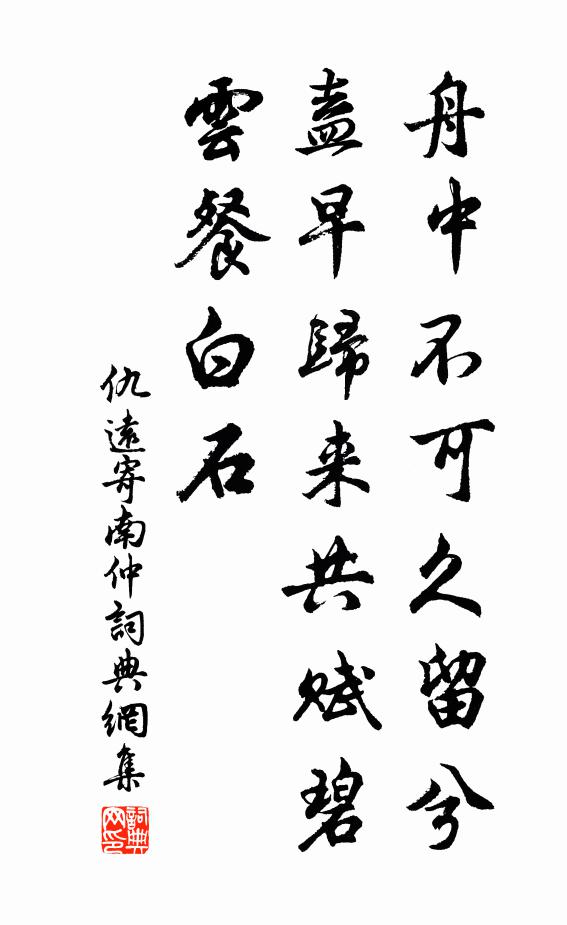 舟中不可久留兮
盍早歸来共赋碧
雲餐白石
仇遠寄南仲詞典網集
詞典网印